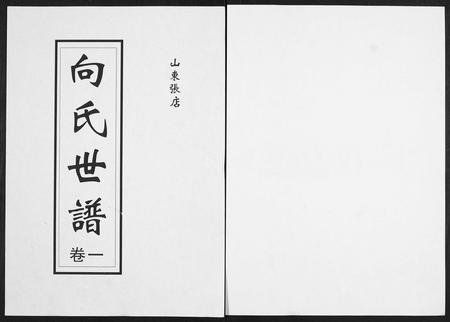 山東張店
向氏世譜
卷一